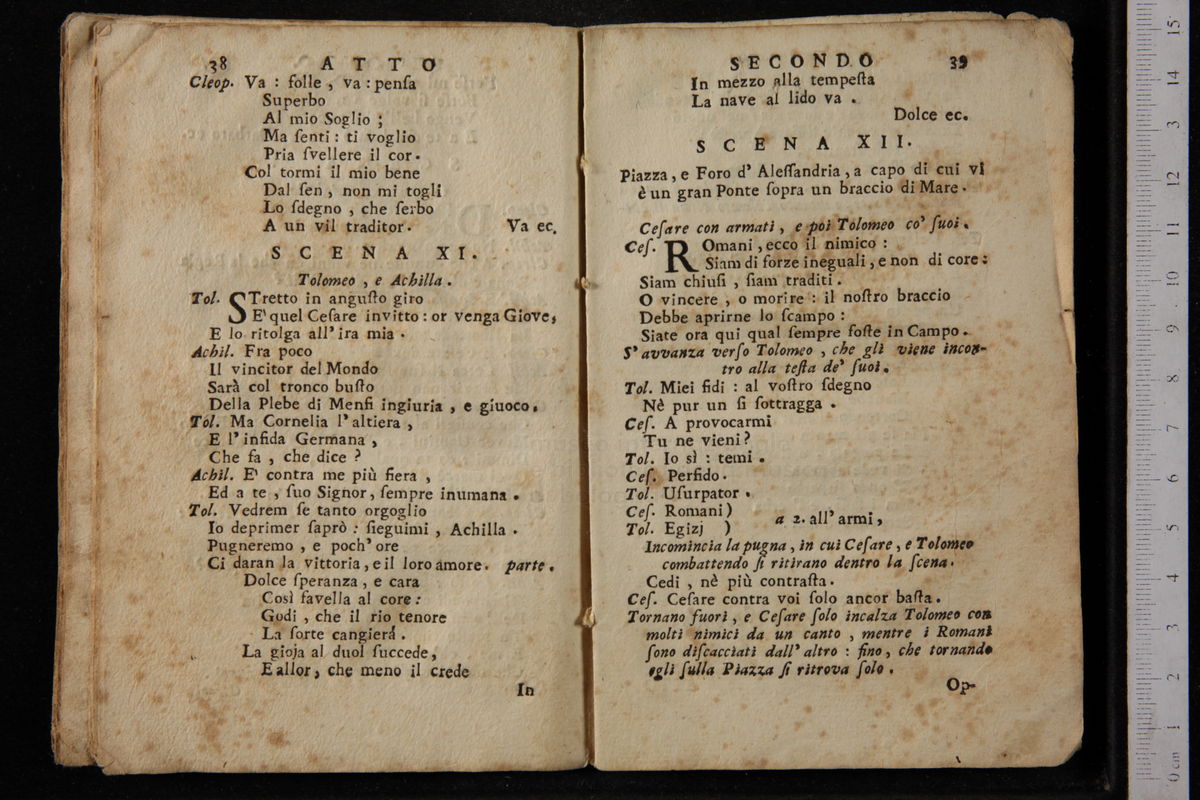 38 ATTO
Cleop. Va : folle , va : penſa
Superbo
Al mio Soglio ;
Ma ſenti : ti voglio
Pria ſvellere il cor.
Col tormi il mio bene
Dal ſen , non mi togli
Lo ſdegno , che ſerbo
A un vil traditor. Va ec.
SCENA XI.
Tolomeo , e Achilla .
Tol. STretto in anguſto giro
E' quel Ceſare invitto : or venga Giove,
E lo ritolga all' ira mia .
Achil. Fra poco
Il vincitor del Mondo
Sarà col tronco buſto
Della Plebe di Menfi ingiuria , e giuoco.
Tol. Ma Cornelia l' altiera ,
E l' infida Germana ,
Che fa , che dice ?
Achil. E' contra me più fiera ,
Ed a te , ſuo Signor, ſempre inumana .
Tol. Vedrem ſe tanto orgoglio
Io deprimer ſaprò : ſieguimi , Achilla .
Pugneremo , e poch' ore
Ci daran la vittoria, e il loro amore. parte.
Dolce ſperanza , e cara
Così favella al core :
Godi , che il rio tenore
La ſorte cangierà .
La gioja al duol ſuccede,
E allor, che meno il crede
In
SECONDO 39
In mezzo alla tempeſta
La nave al lido va .
Dolce ec.
SCENA XII.
Piazza, e Foro d' Aleſſandria, a capo di cui vi
è un gran Ponte ſopra un braccio di Mare.
Ceſare con armati , e poi Tolomeo co' ſuoi.
Ceſ. ROmani, ecco il nimico :
Siam di forze ineguali, e non di core :
Siam chiuſi , ſiam traditi .
O vincere , o morire : il noſtro braccio
Debbe aprirne lo ſcampo :
Siate ora qui qual ſempre foſte in Campo.
S' avvanza verſo Tolomeo , che gli viene incon-
tro alla teſta de' ſuoi.
Tol. Miei fidi : al voſtro ſdegno
Nè pur un ſi ſottragga .
Ceſ. A provocarmi
Tu ne vieni ?
Tol. Io sì : temi .
Ceſ. Perfido .
Tol. Uſurpator .
Ceſ. Romani )
a 2. all' armi,
Tol. Egizj )
Incomincia la pugna, in cui Ceſare, e Tolomeo
combattendo ſi ritirano dentro la ſcena.
Cedi , nè più contraſta.
Ceſ. Ceſare contra voi ſolo ancor baſta.
Tornano fuori, e Ceſare ſolo incalza Tolomeo con
molti nimici da un canto , mentre i Romani
ſono diſcacciati dall' altro : fino, che tornando
egli ſulla Piazza ſi ritrova ſolo .
Op-
15
14
13
12
11
10
9
8
7
6
5
4
3
2
1
0 cm